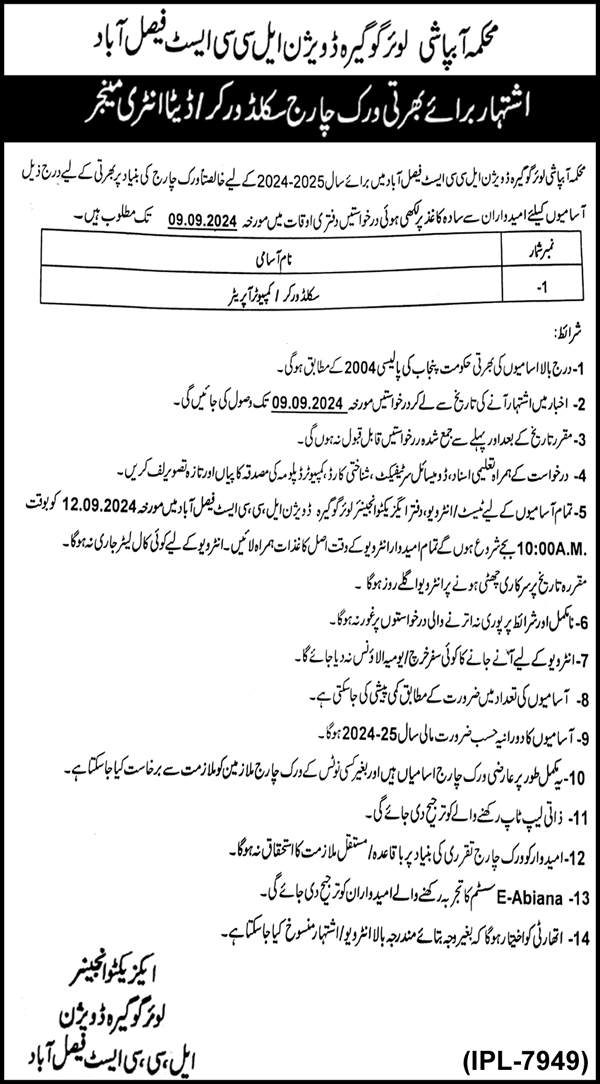 محکمہ آبپاشی لوئر گوگیرہ ڈویژن ایل سی سی ایسٹ فیصل آباد
اشتہار برائے بھرتی ورک چارج سکلڈ ورکر/ڈیٹا انٹری مینجر
محکمہ آبپاشی لوئر گوگیرہ ڈویژن ایل سی سی ایسٹ فیصل آباد میں برائے سال 2025-2024 کے لیے خالصتاً ورک چارج کی بنیاد پر بھرتی کے لیے درج ذیل
آسامیوں کیلئے امیدواران سے سادہ کاغذ پر لکھی ہوئی درخواستیں دفتری اوقات میں مورخہ 09.09.2024 تک مطلوب ہیں۔
نمبر شمار نام آسامی
1- سکلڈ ورکر/کمپیوٹر آپریٹر
شرائط:
1- درج بالا اسامیوں کی بھرتی حکومت پنجاب کی پالیسی 2004 کے مطابق ہوگی۔
2- اخبار میں اشتہار آنے کی تاریخ سے لے کر درخواستیں مورخہ 09.09.2024 تک وصول کی جائیں گی۔
3- مقرر تاریخ کے بعد اور پہلے سے جمع شدہ درخواستیں قابل قبول نہ ہوں گی۔
4- درخواست کے ہمراہ تعلیمی اسناد، ڈومیسائل سرٹیفکیٹ، شناختی کارڈ، کمپیوٹر ڈپلومہ کی مصدقہ کاپیاں اور تازہ تصویر لف کریں۔
5- تمام آسامیوں کے لیے ٹیسٹ/انٹرویو، دفتر ایگزیکٹو انجینئر لوئر گوگیرہ ڈویژن ایل سی سی ایسٹ فیصل آباد میں مورخہ 12.09.2024 کو بوقت
10:00A.M. بجے شروع ہوں گے تمام امیدوار انٹرویو کے وقت اصل کاغذات ہمراہ لائیں۔ انٹرویو کے لیے کوئی کال لیٹر جاری نہ ہوگا۔
مقررہ تاریخ پر سرکاری چھٹی ہونے پر انٹرویو اگلے روز ہوگا۔
6- نامکمل اور شرائط پر پوری نہ اترنے والی درخواستوں پر غور نہ ہوگا۔
7- انٹرویو کے لیے آنے جانے کا کوئی سفر خرچ/یومیہ الاؤنس نہ دیا جائے گا۔
8- آسامیوں کی تعداد میں ضرورت کے مطابق کمی پیشی کی جاسکتی ہے۔
9- آسامیوں کا دورانیہ حسب ضرورت مالی سال 25-2024 ہوگا۔
10- یہ مکمل طور پر عارضی ورک چارج اسامیاں ہیں اور بغیر کسی نوٹس کے ورک چارج ملازمین کو ملازمت سے برخاست کیا جاسکتا ہے۔
11- ذاتی لیپ ٹاپ رکھنے والے کو ترجیح دی جائے گی۔
12- امیدوار کو ورک چارج تقرری کی بنیاد پر باقاعدہ/مستقل ملازمت کا استحقاق نہ ہوگا۔
13- E-Abiana سسٹم کا تجربہ رکھنے والے امیدواران کو ترجیح دی جائے گی۔
14- اتھارٹی کو اختیار ہوگا کہ بغیر وجہ بتائے مندرجہ بالا انٹرویو/اشتہار منسوخ کیا جاسکتا ہے۔
ایگزیکٹو انجینئر
لوئر گوگیرہ ڈویژن
ایل سی سی ایسٹ فیصل آباد
(IPL-7949)